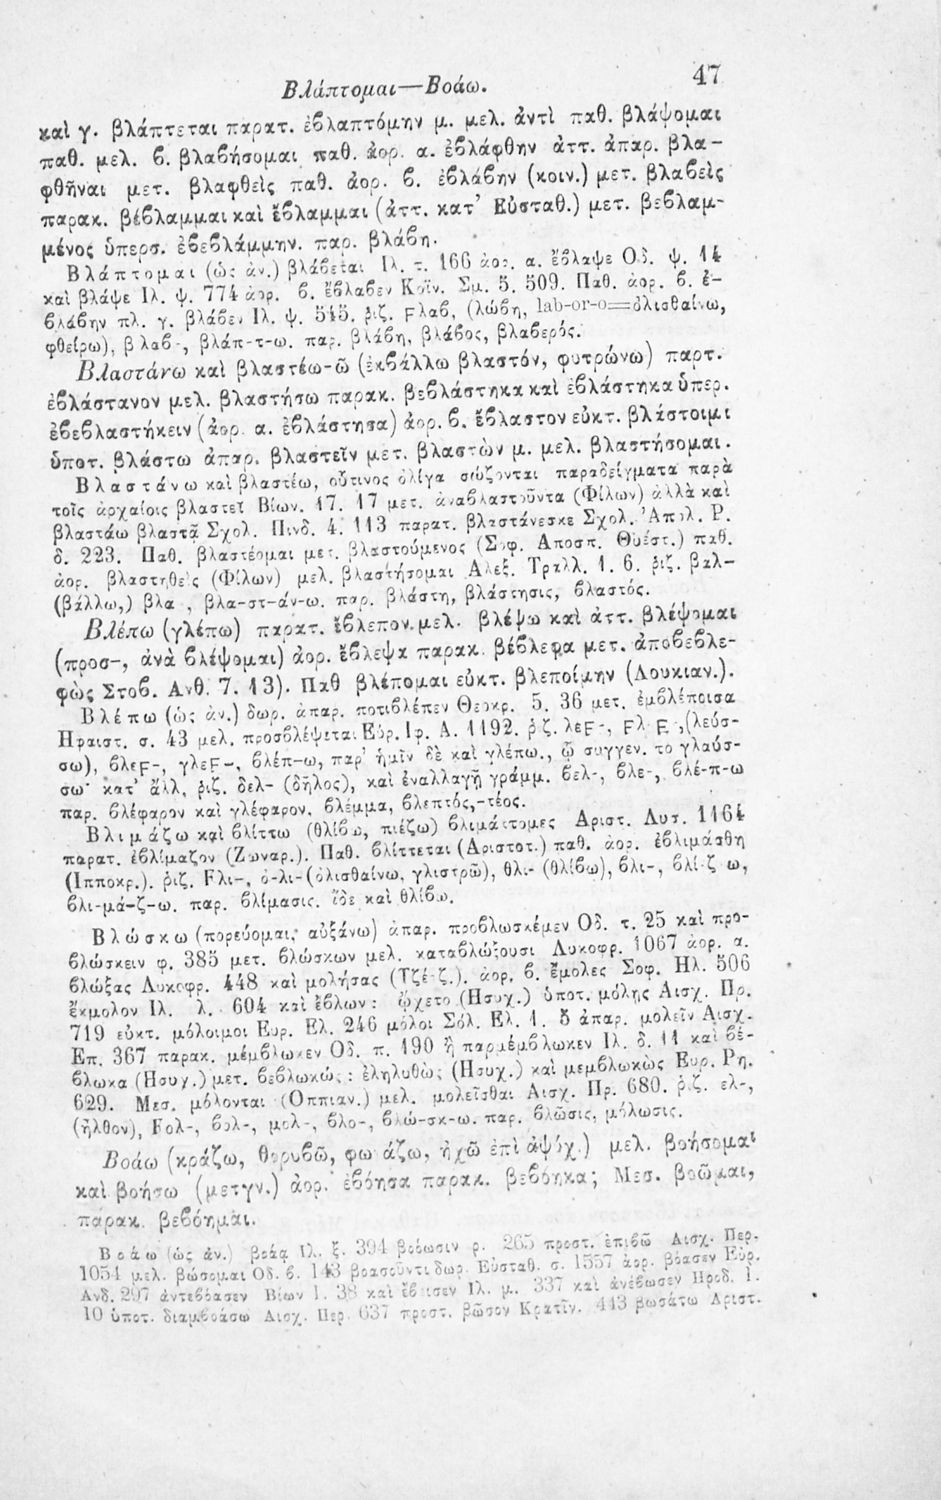 Βλάπτομαι—Βοάω. 47
καὶ γ. βλάπτεται παρατ. ἐβλαπτόμην μ. μελ. ἀντὶ παθ. βλάψομαι
παθ. μελ. β. βλαβήσομαι παθ. ἀορ. α. ἐβλάφθην ἀττ. ἀπαρ. βλα-
φθῆναι μετ. βλαφθεὶς παθ. ἀορ. β. ἐβλάβην (κοιν.) μετ. βλαβεὶς
παρακ. βέβλαμμαι καὶ ἔβλαμμαι (ἀττ. κατ᾽ Εὐσταθ.) μετ. βεβλαμ-
μένος ὑπερσ. ἐβεβλάμμην. παρ. βλάβη.
Βλάπτομαι (ὡς ἀν.) βλάβεται Ιλ. τ. 166 ἀορ. α. ἔβλαψε Οδ. ψ. 14
καὶ βλάψε Ιλ. ψ. 774 ἀορ. β. ἔβλαβεν Κοϊν. Σμ. 5. 509. Παθ. ἀορ. β. ἐ-
βλάβην πλ. γ. βλάβεν Ιλ. ψ. 545. ῥιζ. Ϝλαβ, (λώβη, lab-or-o=ὀλισθαίνω,
φθείρω), βλαβ-, βλάπ-τ-ω. παρ. βλάβη, βλάβος, βλαβερός.
Βλαστάνω καὶ βλαστέω-ῶ (ἐκβάλλω βλαστόν, φυτρώνω) παρτ.
ἐβλάστανον μελ. βλαστήσω παρακ. βεβλάστηκα καὶ ἐβλάστηκα ὑπερ.
ἐβεβλαστήκειν (ἀορ. α. ἐβλάστησα) ἀορ. β. ἔβλαστον εὐκτ. βλάστοιμι
ὑποτ. βλάστω ἀπαρ. βλαστεῖν μετ. βλαστὼν μ. μελ. βλαστήσομαι.
Βλαστάνω καὶ βλαστέω, οὗτινος ὀλίγα σώζονται παραδείγματα παρὰ
τοῖς ἀρχαίοις βλαστεῖ Βίων. 17. 17 μετ. ἀναβλαστοῦντα (Φίλων) ἀλλὰ καὶ
βλαστάω βλαστᾷ Σχολ. Πινδ. 4. 113 παρατ. βλαστάνεσκε Σχολ. Ἀπολ. Ρ.
δ. 223. Παθ. βλαστέομαι μετ. βλαστούμενος (Σοφ. Αποσπ. Θυέστ.) παθ.
ἀορ. βλαστηθεὶς (Φίλων) μελ. βλαστήσομαι Αλεξ. Τραλλ. 1. 6. ῥιζ. βαλ-
(βάλλω,) βλα-, βλα-στ-άν-ω. παρ. βλάστη, βλάστησις, βλαστός.
Βλέπω (γλέπω) παρατ. ἔβλεπον. μελ. βλέψω καὶ ἀττ. βλέψομαι
(προσ-, ἀνὰ βλέψομαι) ἀορ. ἔβλεψα παρακ. βέβλεφα μετ. ἀποβεβλε-
φὼς Στοβ. Ανθ. 7. 13). Παθ βλέπομαι εὐκτ. βλεποίμην (Λουκιαν.).
Βλέπω (ὡς ἀν.) δωρ. ἀπαρ. ποτιβλέπεν Θεοκρ. 5. 36 μετ. ἐμβλέποισα
Ηφαιστ. σ. 43 μελ. προσβλέψεται Εὐρ. Ιφ. Α. 1192. ῥιζ. λεϜ-, Ϝλ Ϝ-, (λεύσ-
σω), βλεϜ-, γλεϜ-, βλέπ-ω, παρ᾽ ἡμῖν δὲ καὶ γλέπω., ᾧ συγγεν. το γλαύσ-
σω· κατ᾽ ἄλλ. ῥιζ. δελ- (δῆλος), καὶ ἐναλλαγῇ γράμμ. βελ-, βλε-, βλέ-π-ω
παρ. βλέφαρον καὶ γλέφαρον, βλέμμα, βλεπτός,-τέος.
Βλιμάζω καὶ βλίττω (θλίβω, πιέζω) βλιμάττομες Αριστ. Λυσ. 1164
παρατ. ἐβλίμαζον (Ζωναρ.). Παθ. βλίττεται (Αριστοτ.) παθ. ἀορ. ἐβλιμάσθη
(Ιπποκρ.). ῥιζ. Ϝλι-, ὀ-λι-(ὀλισθαίνω, γλιστρῶ), θλι- (θλίβω), βλι-, βλί-ζ ω,
βλι-μά-ζ-ω. παρ. βλίμασις. ἴδε καὶ θλίβω.
Βλώσκω (πορεύομαι, αὐξάνω) ἀπαρ. προβλωσκέμεν Οδ. τ. 25 καὶ προ-
βλώσκειν φ. 385 μετ. βλώσκων μελ. καταβλώξουσι Λυκοφρ. 1067 ἀορ. α.
βλώξας Λυκοφρ. 448 καὶ μολήσας (Τζέτζ.). ἀορ. β. ἔμολες Σοφ. Ηλ. 506
ἔκμολον Ιλ. λ. 604 καὶ ἔβλων: ᾤχετο (Ησυχ.) ὑποτ. μόλῃς Αισχ. Πρ.
719 εὐκτ. μόλοιμοι Ευρ. Ελ. 246 μόλοι Σόλ. Ελ. 1. 5 ἀπαρ. μολεῖν Αισχ.
Επ. 367 παρακ. μέμβλωκεν Οδ. π. 190 ἢ παρμέμβλωκεν Ιλ. δ. 11 καὶ βέ-
βλωκα (Ησυχ.) μετ. βεβλωκώς: ἐληλυθώς (Ησυχ.) καὶ μεμβλωκὼς Ευρ. Ρη.
629. Μεσ. μόλονται (Οππιαν.) μελ. μολεῖσθαι Αισχ. Πρ. 680. ῥιζ. ελ-,
(ἦλθον), Ϝολ-, βολ-, μολ-, βλο-, βλώ-σκ-ω. παρ. βλῶσις, μόλωσις.
Βοάω (κράζω, θορυβῶ, φωνάζω, ἠχῶ ἐπὶ ἀψύχ.) μελ. βοήσομαι
καὶ βοήσω (μετγν.) ἀορ. ἐβόησα παρακ. βεβόηκα; Μεσ. βοῶμαι,
παρακ. βεβόημαι.
Βοάω (ὡς ἀν.) βοάᾳ Ιλ. ξ. 394 βοόωσιν ρ. 265 προστ. ἐπιβῶ Αισχ. Περ.
1054 μελ. βώσομαι Οδ. β. 143 βοασοῦντι δωρ. Εὐσταθ. σ. 1557 ἀορ. βόασεν Εὐρ.
Ανδ. 297 ἀντεβόασεν Βίων 1. 38 καὶ ἔβωσεν Ιλ. μ. 337 καὶ ἀνέβωσεν Ηροδ. 1.
10 ὑποτ. διαμβοάσω Αισχ. Περ. 637 προστ. βῶσον Κρατῖν. 443 βωσάτω Αριστ.